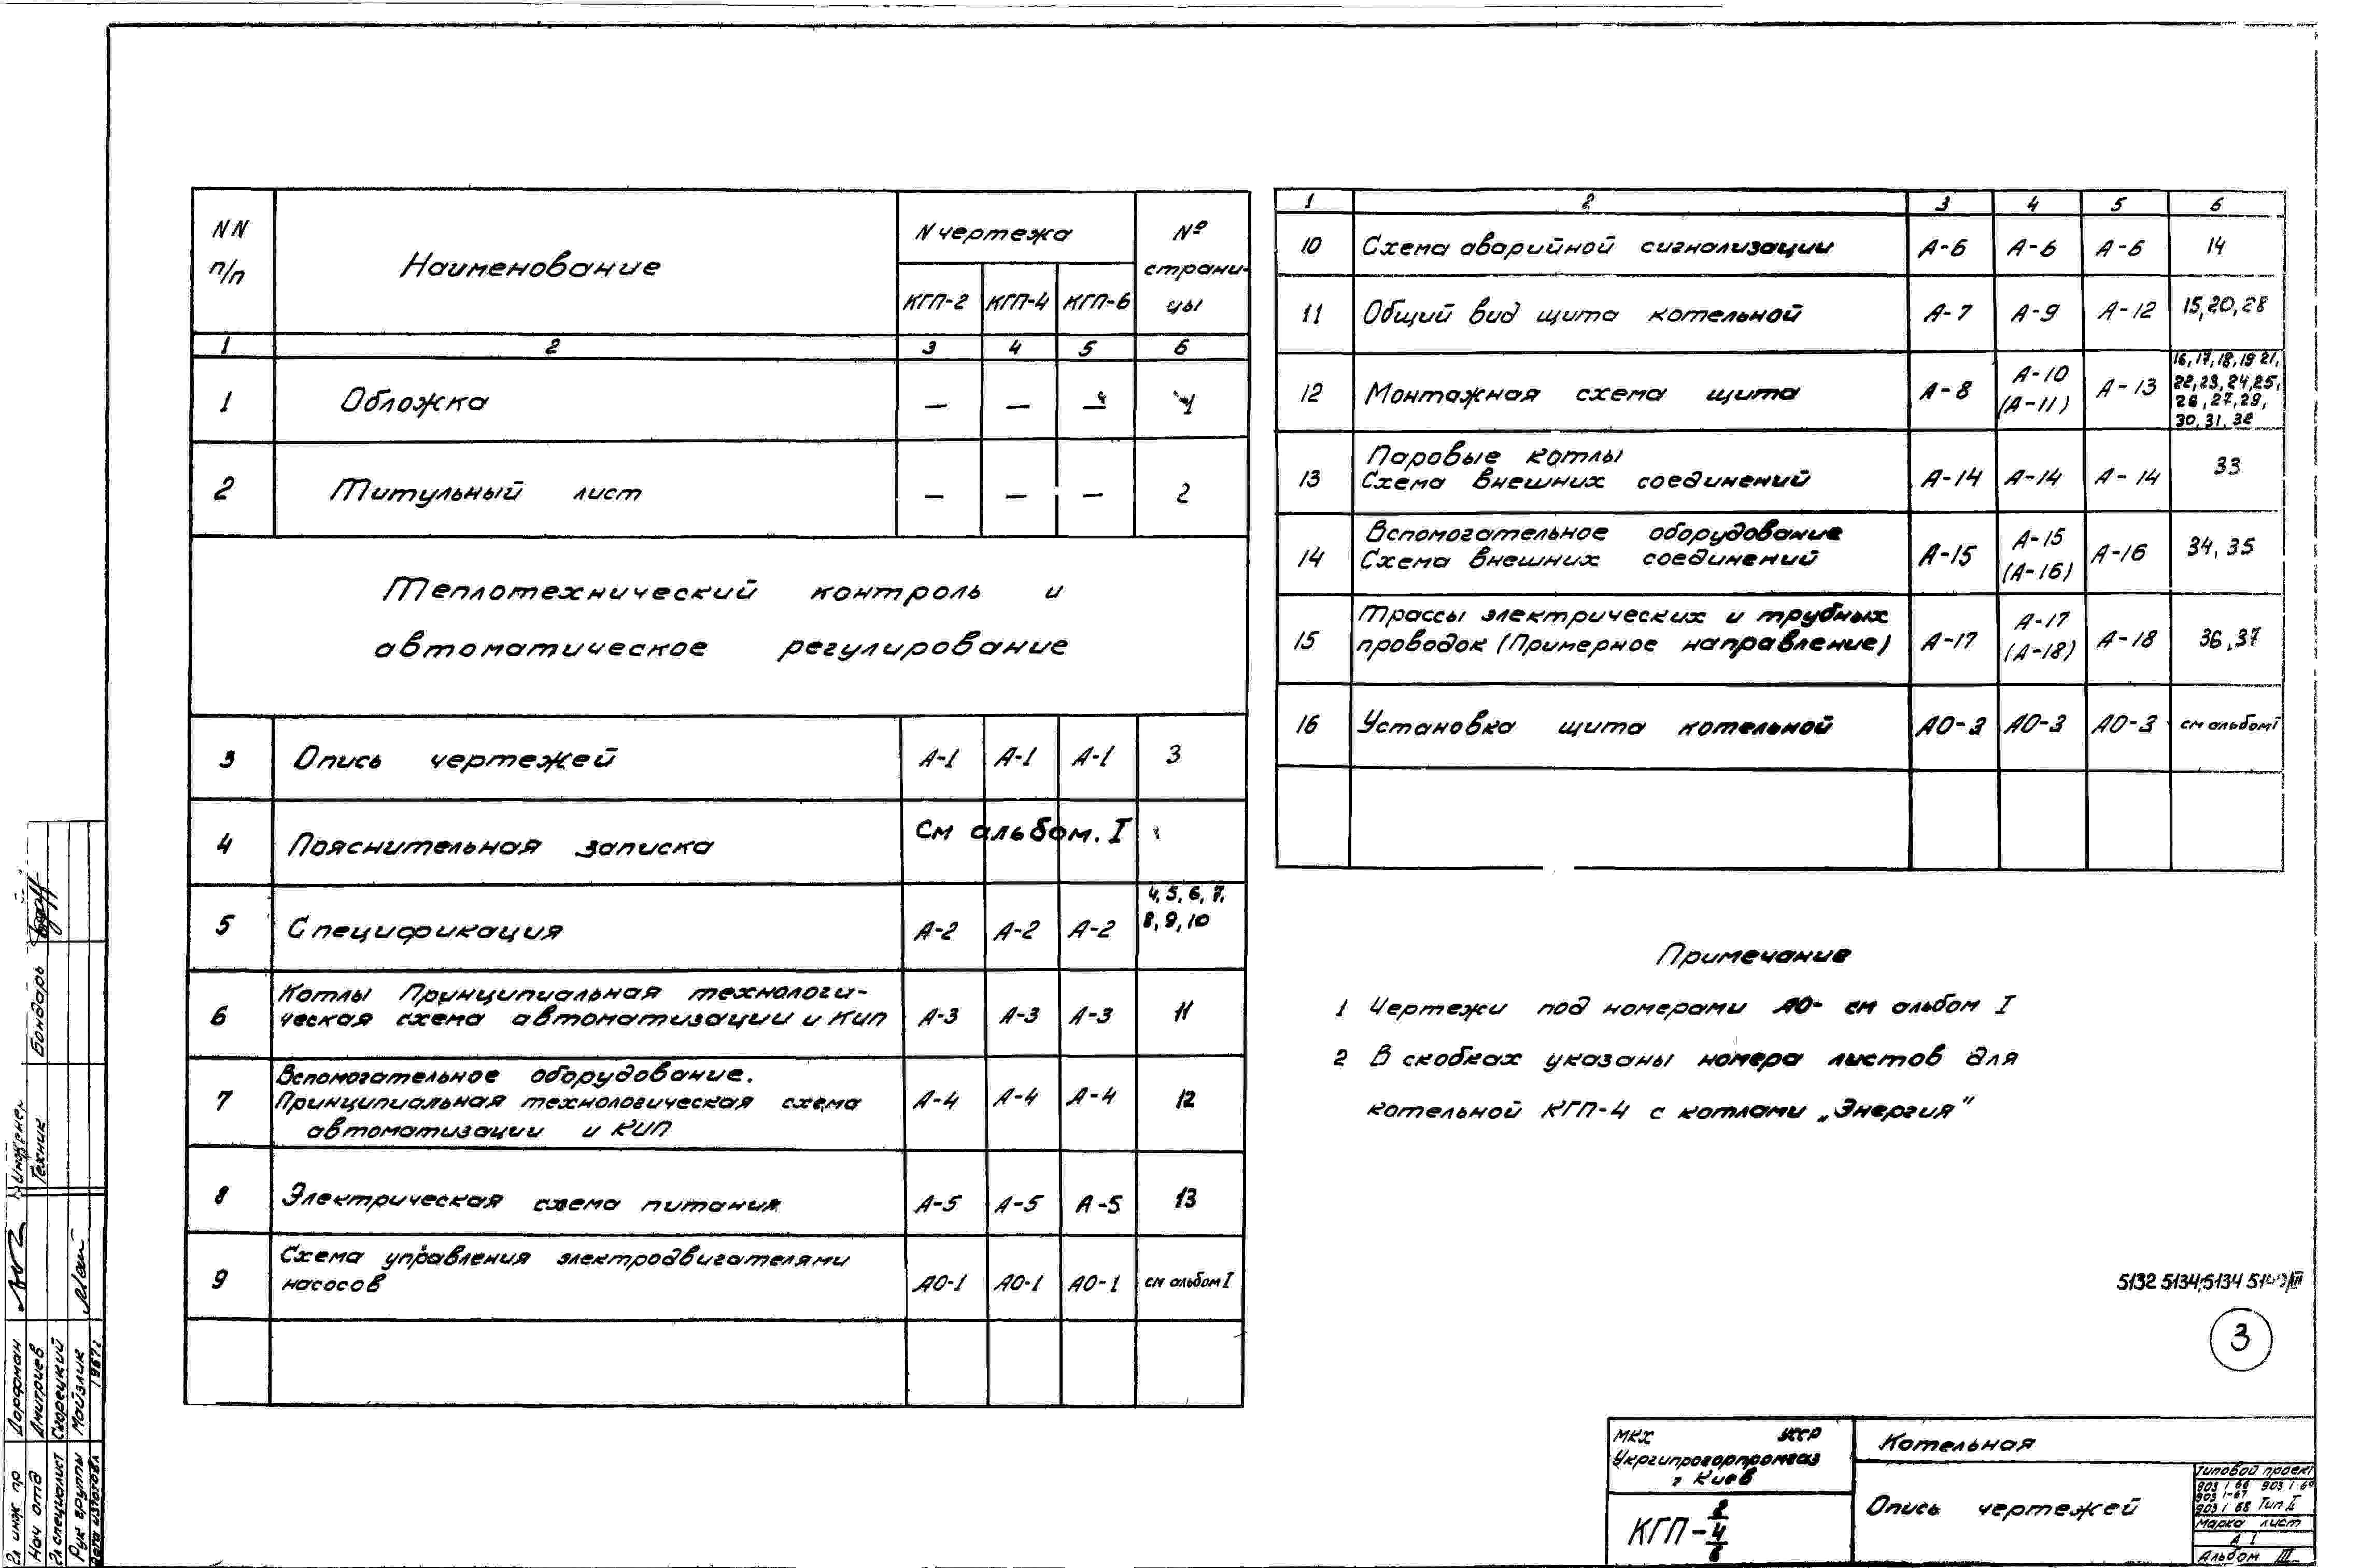 NN п/п Наименование N чертежа № страни-цы
КГП-2 КГП-4 КГП-6
1 2 3 4 5 6
1 Обложка — — — 1
2 Титульный лист — — — 2
Теплотехнический контроль и
автоматическое регулирование
3 Опись чертежей А-1 А-1 А-1 3
4 Пояснительная записка См альбом. I
5 Спецификация А-2 А-2 А-2 4, 5, 6, 7,
8, 9, 10
6 Котлы Принципиальная технологи-
ческая схема автоматизации и КИП А-3 А-3 А-3 11
7 Вспомогательное оборудование.
Принципиальная технологическая схема А-4 А-4 А-4 12
автоматизации и КИП
8 Электрическая схема питания А-5 А-5 А-5 13
9 Схема управления электродвигателями
насосов АО-1 АО-1 АО-1 см альбом I
1 2 3 4 5 6
10 Схема аварийной сигнализации А-6 А-6 А-6 14
11 Общий вид щита котельной А-7 А-9 А-12 15,20,28
12 Монтажная схема щита А-8 А-10 (А-11) А-13 16,17,18,19 21,
22,23,24,25,
26,27,29,
30,31,32
13 Паровые котлы
Схема внешних соединений А-14 А-14 А-14 33
14 Вспомогательное оборудование
Схема внешних соединений А-15 А-15 (А-16) А-16 34, 35
15 Трассы электрических и трубных
проводок (Примерное направление) А-17 А-17 (А-18) А-18 36,37
16 Установка щита котельной АО-3 АО-3 АО-3 см альбом I
Примечание
1 Чертежи под номерами АО- см альбом I
2 В скобках указаны номера листов для
котельной КГП-4 с котлами „Энергия"
5132 5134;5134
3
МКХ УССР
Укргипрогорпромгаз
г Киев
КГП- 2 4 6
Котельная
Опись чертежей
Типовой проект
903 1 66 903 1 69
903 1-67
903 1 68 Тип II
Марка лист
А 1
Альбом III
Гл инж пр Дорфман Инженер
Нач отд Дмитриев Техник Бондарь
Гл специалист Скорецкий
Рук группы Майзлик
Дата изготовл 1967г